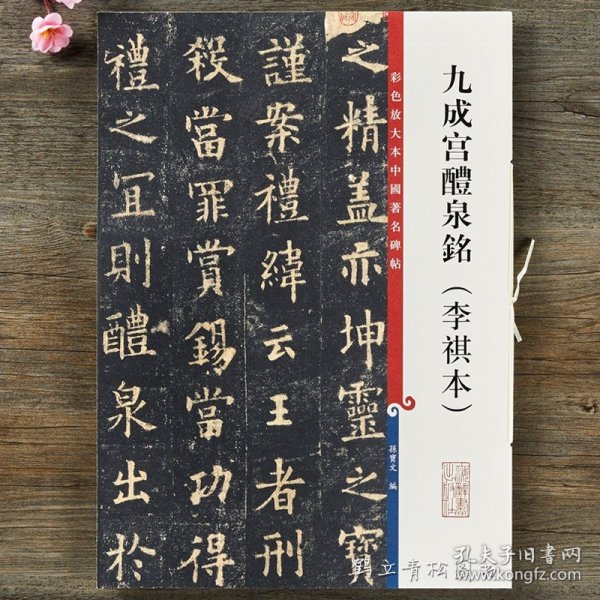 九成宫醴泉銘（李祺本）
彩色放大本中國著名碑帖
孫寶文 編
之精盖亦坤靈之寶
謹案禮緯云王者刑
殺當罪賞錫當功得
禮之冝則醴泉出於
鹤立青松图
孔夫子旧书网
www.kongfz.com